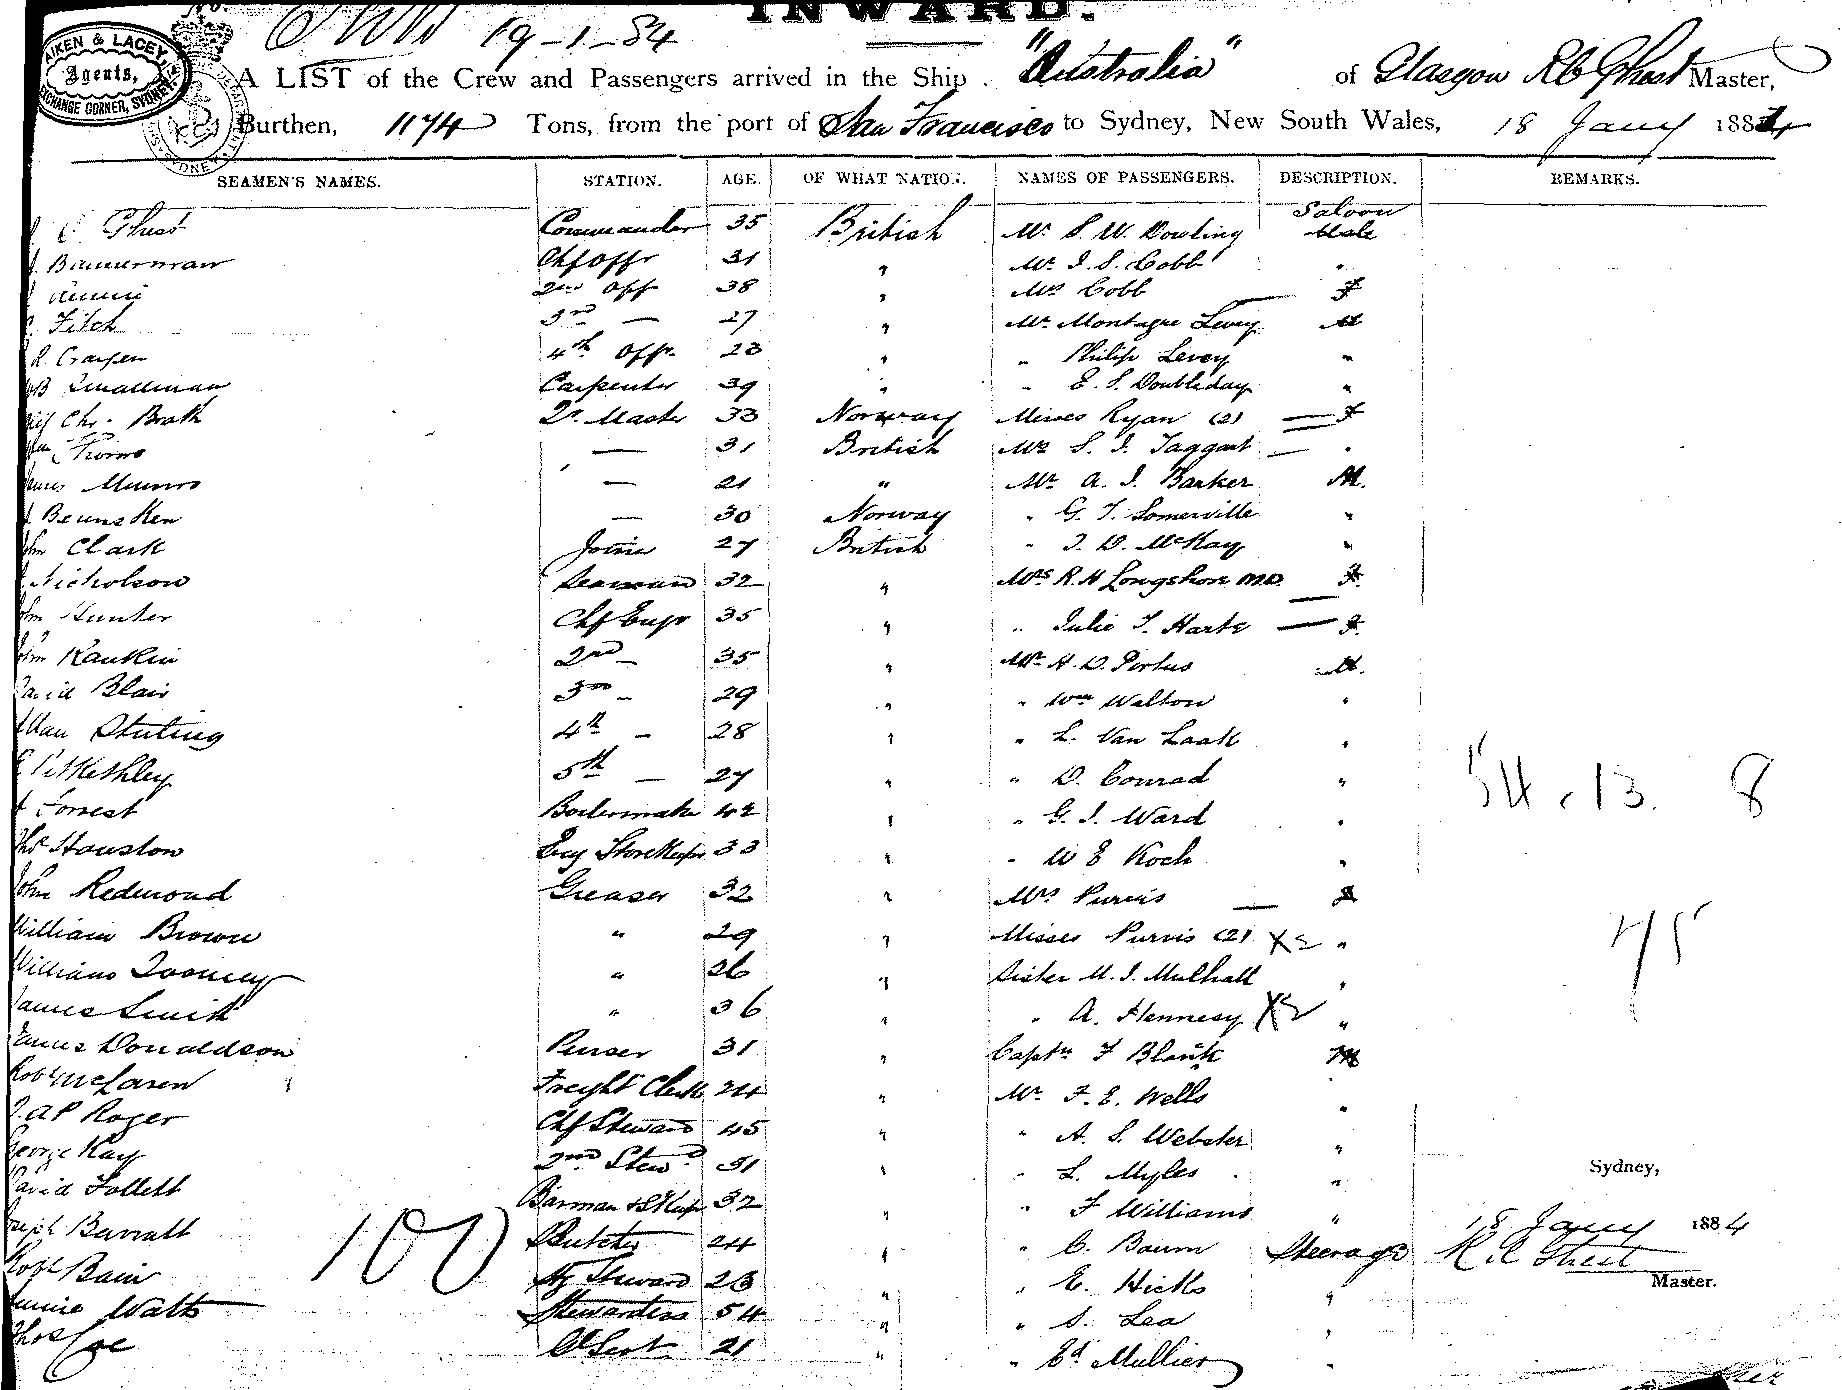 INWARD.
19-1-84
AIKEN & LACEY,
Agents,
EXCHANGE CORNER, SYDNEY
A LIST of the Crew and Passengers arrived in the Ship "Australia" of Glasgow R C Ghest Master,
Burthen, 1174 Tons, from the port of San Francisco to Sydney, New South Wales, 18 Jany 1884
SEAMEN'S NAMES. STATION. AGE. OF WHAT NATION. NAMES OF PASSENGERS. DESCRIPTION. REMARKS.
C Ghest Commander 35 British Mr S. W. Dowling Saloon Male
Bannerman Chf Offr 31 " Mr J. S. Cobb "
2nd Off 38 " Mrs Cobb F
Fitch 3rd — 27 " Mr Montague Levey M
4th Offr 23 " " Philip Levey "
Smallman Carpenter 39 " " E. S. Doubleday "
Chr. Brath Qr Master 33 Norway Misses Ryan (2) F
— 31 British Mrs S. J. Taggart "
Munro — 21 " Mr A. J. Barker M.
— 30 Norway " G. T. Somerville "
John Clark Joiner 27 British " J. D. McKay "
Nicholson Seaman 32 " Mrs R. H Longshore M.D. F.
John Hunter Chf Engr 35 " " Julie T. Harte F.
John Rankin 2nd — 35 " Mr A. D. Portus M.
David Blair 3rd — 29 " " Wm Walton "
Allan 4th — 28 " " L. Van Laak "
Pitkethley 5th — 27 " " D. Conrad " 54 . 13. 8
Forrest Boilermaker 42 " " G. J. Ward "
Thos Houston Eng Storekeepr 33 " " W E Koch "
John Redmond Greaser 32 " Mrs Purvis F
William Brown " 29 " Misses Purvis (2) X2 " 75
William Toomey " 26 " Sister M. J. Mulhall "
James Smith " 36 " " A. Hennesy X2 "
James Donaldson Purser 31 " Captn F Blank M
Robt McLaren Freight Clerk 24 Mr F. E. Wells "
J. A P Roger Chf Steward 45 " " A. S. Webster "
George Kay 2nd Stewd 31 " " L. Myles "
David Follett Barman & S Keepr 32 " " F Williams "
Joseph Barratt Butcher 24 " " C. Baum Steerage
100
Robt Bain Steward 23 " " E. Hicks "
Watt Stewardess 54 " " S. Lea "
Thos Coe 21 " " Ed Mullier "
Sydney,
18 Jany 1884
R. C Ghest
Master.